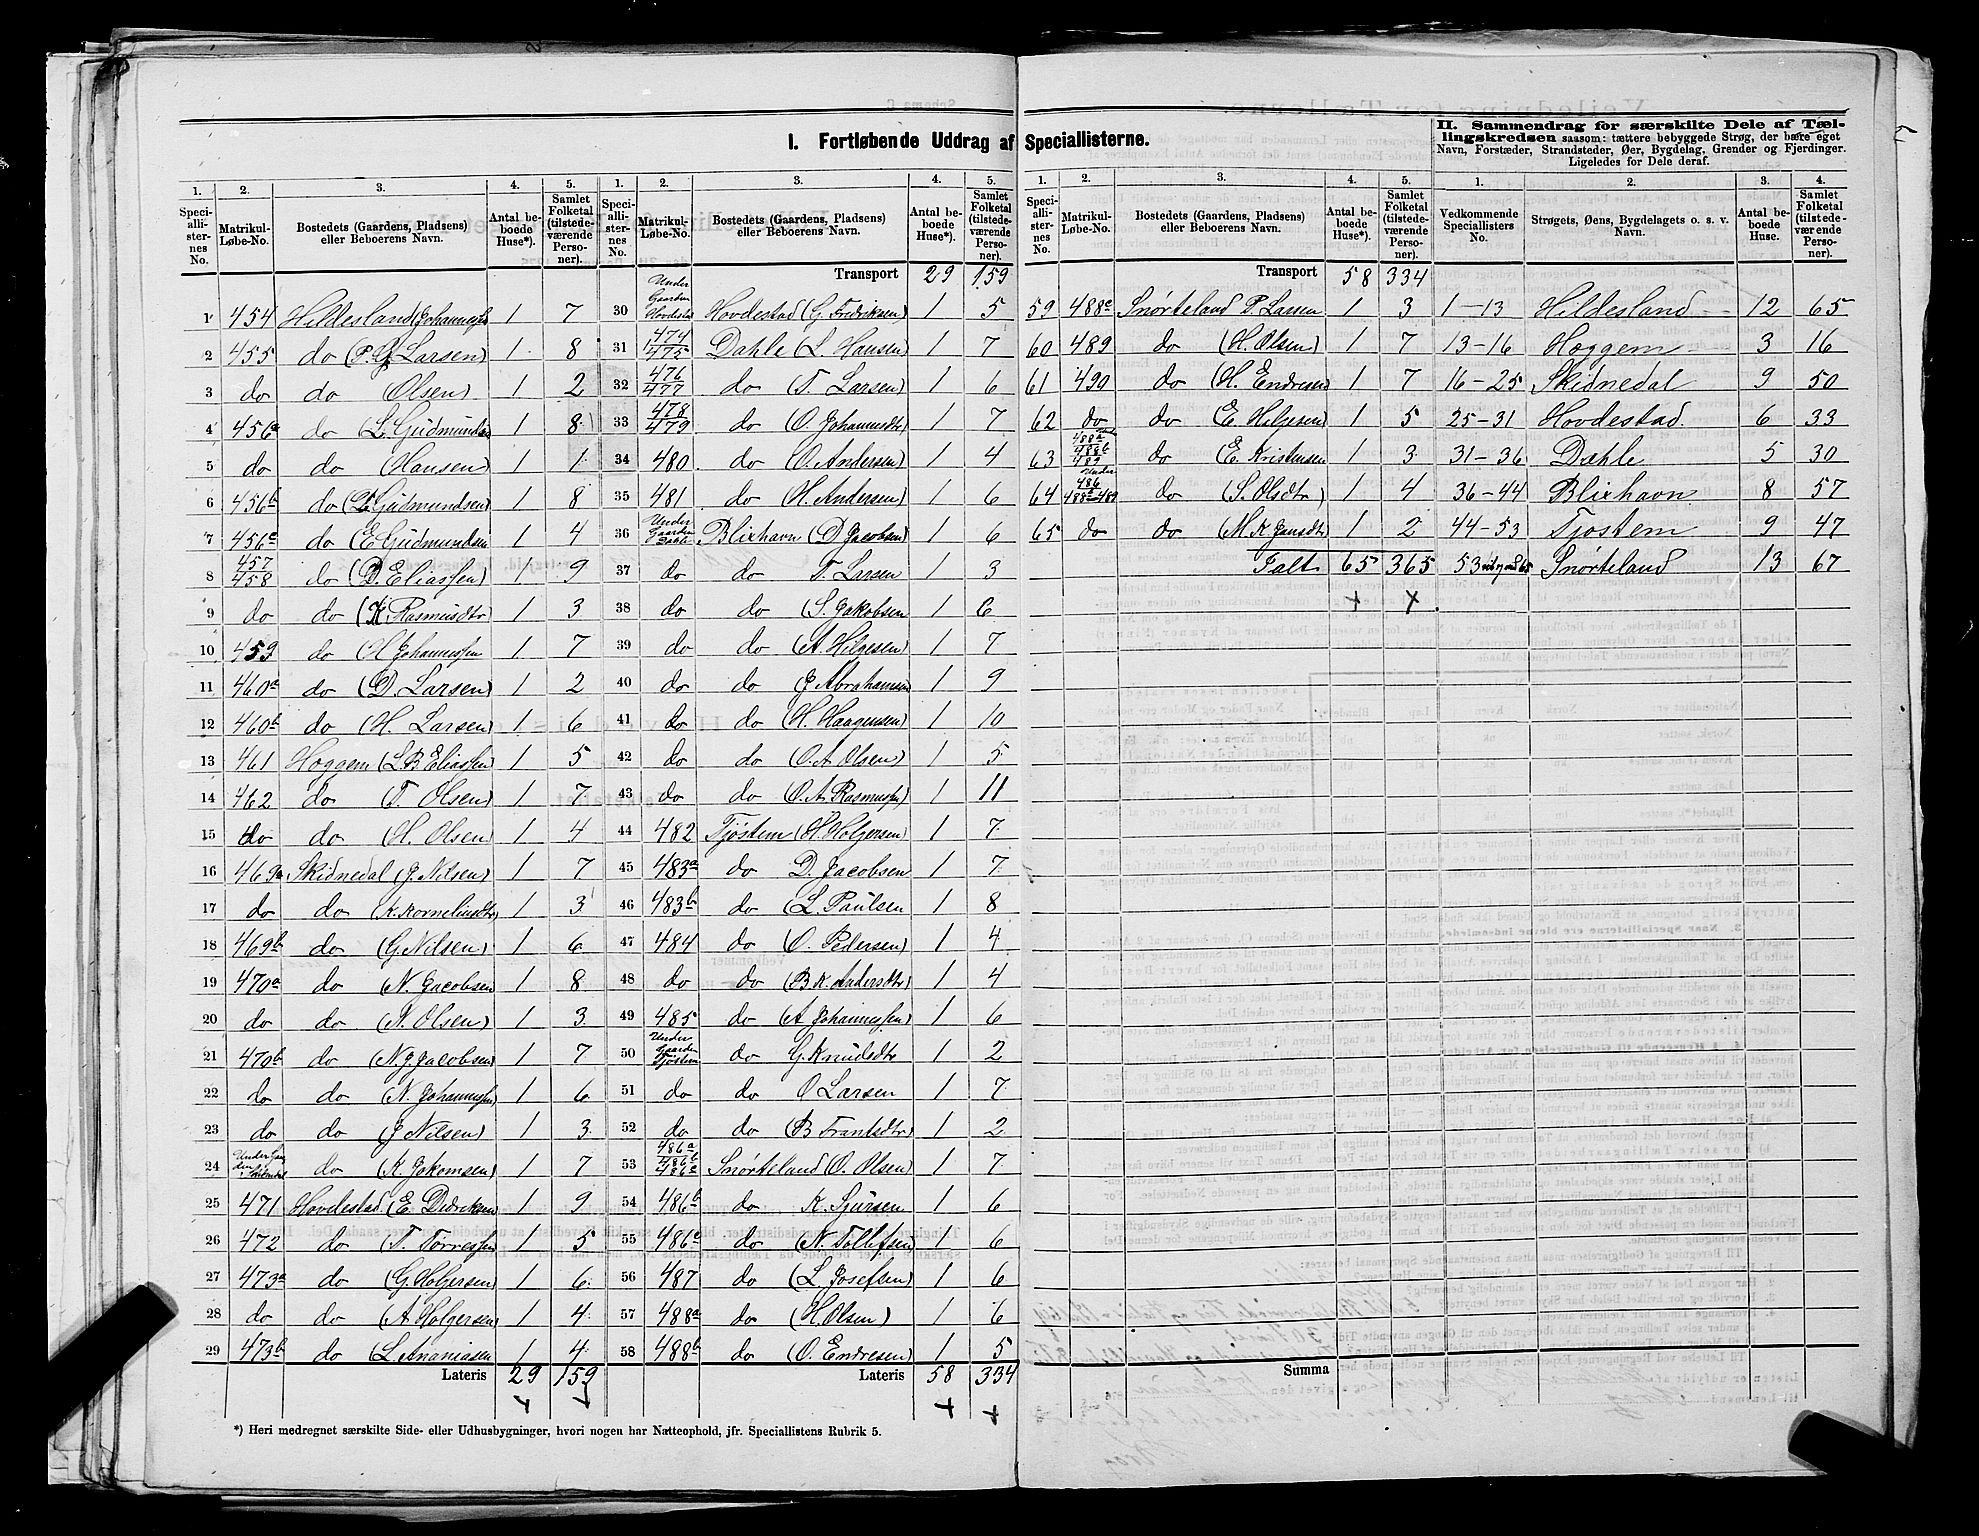 I. Fortløbende Uddrag af Speciallisterne.
II. Sammendrag for særskilte Dele af Tæl-
lingskredsen saasom: tættere bebyggede Strøg, der bære eget
Navn, Forstæder, Strandsteder, Øer, Bygdelag, Grender og Fjerdinger.
Ligeledes for Dele deraf.
1. 2. 3. 4. 5.
Speciallisternes No. Matrikul-Løbe-No. Bostedets (Gaardens, Pladsens) eller Beboerens Navn. Antal beboede Huse*). Samlet Folketal (tilstedeværende Personer).
1 454 Hildesland (Johannessen 1 7
2 455 do (P. G. Larsen) 1 8
3 do do Olsen) 1 2
4 456a do (L. Gudmundsen 1 8
5 do do Hansen) 1 1
6 456b do (L. Gudmundsen) 1 8
7 456c do (E Gudmundsen 1 4
8 457 458 do (D. Eliassen) 1 9
9 do do (K Rasmusdtr 1 3
10 459 do (H Johannessen 1 7
11 460a do (D. Larsen) 1 2
12 460b do (H. Larsen) 1 6
13 461 Hoggem (L. B Eliassen) 1 5
14 462 do (T. Olsen) 1 7
15 do do (H. Olsen) 1 4
16 469a Skidnedal (J Nilsen) 1 7
17 do do (K. Korneliusdtr) 1 3
18 469b do (G Nilsen) 1 6
19 470a do (N. Jacobsen 1 8
20 do do (N. Olsen) 1 3
21 470b do (N. J. Jacobsen) 1 7
22 do do (N. Johannessen) 1 6
23 do do (J Nilsen) 1 3
24 Under Gaarden Skidnedal do (K. Jokomsen) 1 7
25 471 Hovdestad (E. Didriksen 1 9
26 472 do (T. Torressen 1 5
27 473a do (G. Holgersen) 1 6
28 do do (A Holgersen) 1 4
29 473b do (L. Ananiasen 1 4
Lateris 29 159
*) Heri medregnet særskilte Side- eller Udhusbygninger, hvori nogen har Natteophold, jfr. Speciallistens Rubrik 5.
1. 2. 3. 4. 5.
Speciallisternes No. Matrikul-Løbe-No. Bostedets (Gaardens, Pladsens) eller Beboerens Navn. Antal beboede Huse*). Samlet Folketal (tilstedeværende Personer).
Transport 29 159
30 Under Gaarden Hovdestad Hovdestad (G. Fredriksen) 1 5
31 474 475 Dahle (L. Hansen) 1 7
32 476 477 do (T. Larsen) 1 6
33 478 479 do (O. Johannesdtr) 1 7
34 480 do (O. Andersen) 1 4
35 481 do (H. Andersen) 1 6
36 Under Gaarden Dahle Blixhavn (D Jacobsen) 1 6
37 do do T. Larsen 1 3
38 do do (S. Jakobsen 1 6
39 do do (A Hilgesen) 1 7
40 do do (J Abrahamsen) 1 9
41 do do (H. Haagensen) 1 10
42 do do (O. A Olsen) 1 5
43 do do (O. A. Rasmussen) 1 11
44 482 Tjøstem (H. Holgersen) 1 7
45 483a do D. Jacobsen 1 7
46 483b do (L. Paulsen 1 8
47 484 do (O. Pedersen) 1 4
48 do do (B K. Andersdtr) 1 4
49 485 do (A Johannessen) 1 6
50 Under Gaarden Tjøstem do G. Knudsdtr 1 2
51 do do O Larsen 1 7
52 do do (B Frantsdtr) 1 2
53 486a 486b 486c Snørteland (O. Olsen) 1 7
54 486b do K. Sjursen 1 6
55 486c do (N. Tollefsen) 1 6
56 487 do (L. Josefsen) 1 6
57 488a do (H. Olsen) 1 6
58 488b do (O. Endresen) 1 5
Lateris 58 334
1. 2. 3. 4. 5.
Speciallisternes No. Matrikul-Løbe-No. Bostedets (Gaardens, Pladsens) eller Beboerens Navn. Antal beboede Huse*). Samlet Folketal (tilstedeværende Personer).
Transport 58 334
59 488c Snørteland P. Larsen 1 3
60 489 do (H. Olsen) 1 7
61 490 do (H. Endresen) 1 7
62 do do (E. Helgesen) 1 5
63 Under 488a 488b 489 do (E. Kristensen 1 3
64 Under 486 488a-489 do (S. Olsdtr) 1 4
65 do do (M. K. Jansdtr) 1 2
Ialt 65 365
Summa
1. 2. 3. 4.
Vedkommende Speciallisters No. Strøgets, Øens, Bygdelagets o. s. v. Navn. Antal beboede Huse. Samlet Folketal (tilstedeværende Personer).
1-13 Hildesland 12 65
13-16 Hoggem 3 16
16-25 Skidnedal 9 50
25-31 Hovdestad 6 33
31-36 Dahle 5 30
36-44 Blixhavn 8 57
44-53 Tjøstem 9 47
53 65 Snørteland 13 67